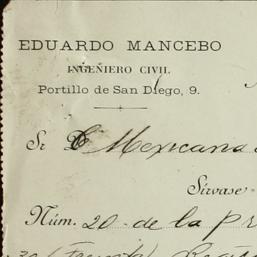 EDUARDO MANCEBO
INGEÑIERO CIVIL
Portillo de San Diego, 9.
Sr Mexicana
Sírvase
Núm. 20 de la pr